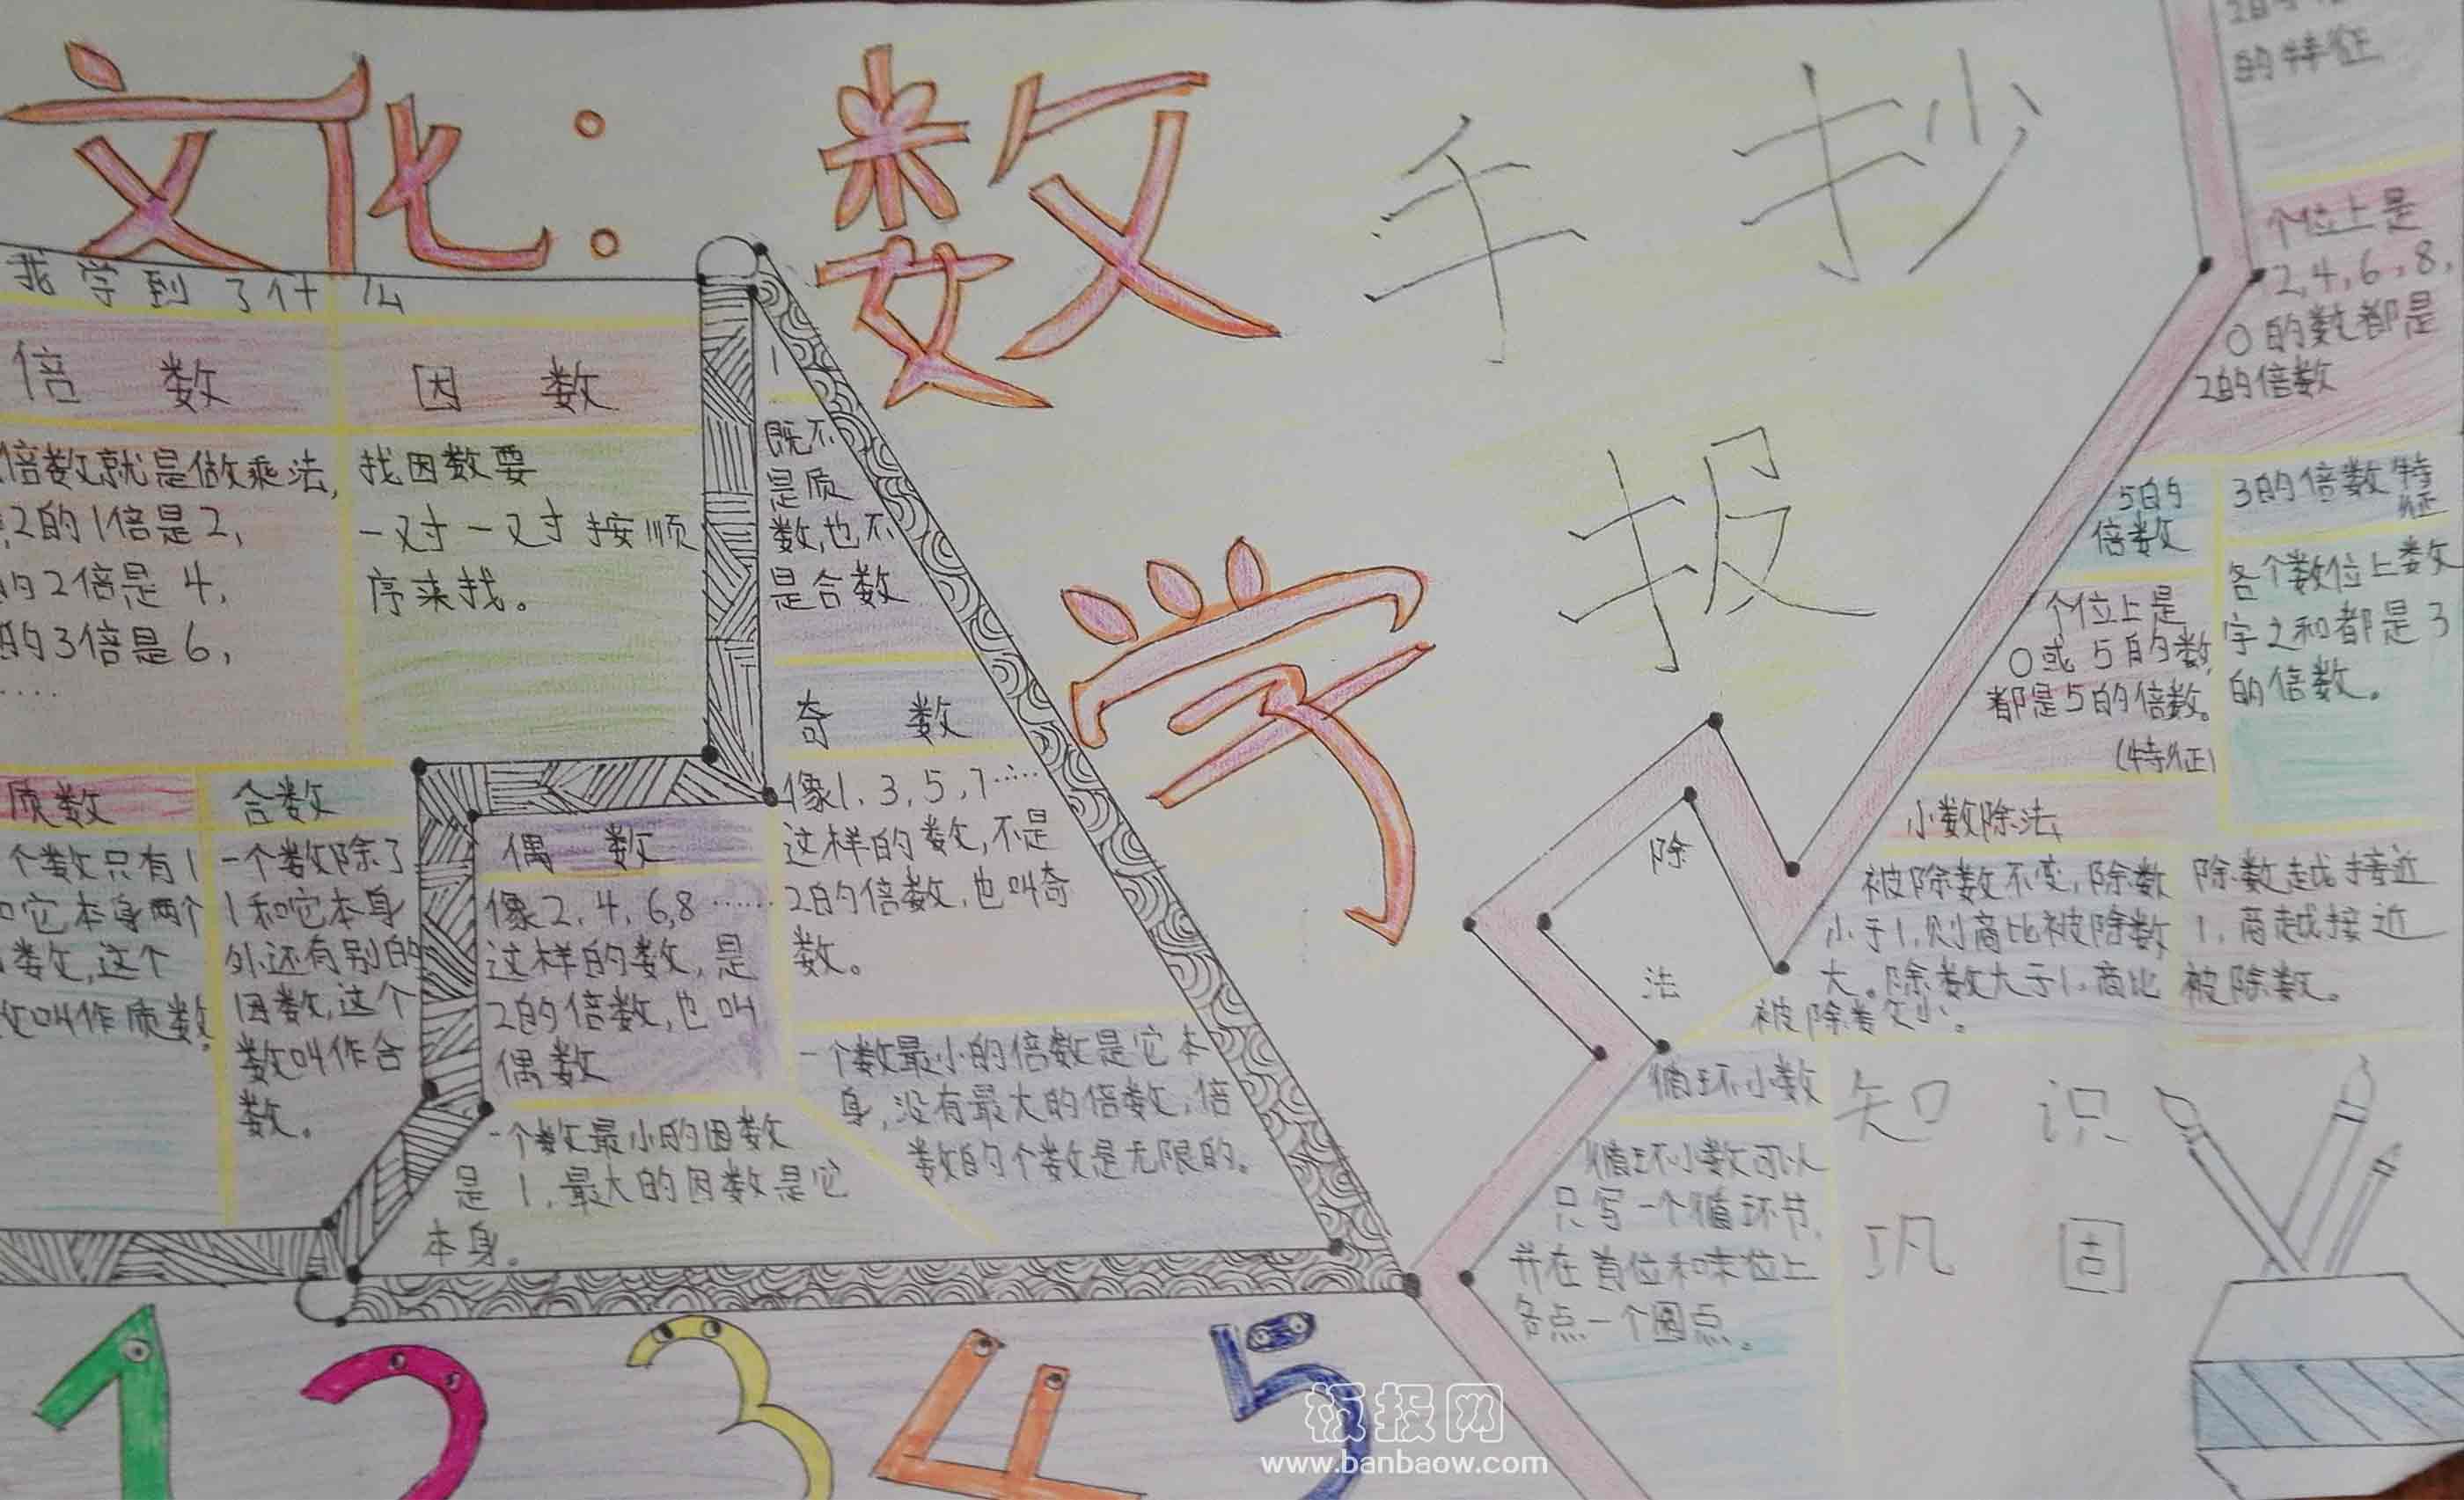 文化：数学
手抄
报
我学到了什么
倍数
倍数就是做乘法,
2的1倍是2,
的2倍是4,
的3倍是6,
……
因数
找因数要
一对一对按顺
序来找。
1
既不
是质
数,也不
是合数
奇数
像1,3,5,7……
这样的数,不是
2的倍数,也叫奇
数。
质数
个数只有1
和它本身两个
数,这个
数叫作质数。
合数
一个数除了
1和它本身
外还有别的
因数,这个
数叫作合
数。
偶数
像2,4,6,8……
这样的数,是
2的倍数,也叫
偶数
一个数最小的因数
是1,最大的因数是它
本身。
一个数最小的倍数是它本
身,没有最大的倍数,倍
数的个数是无限的。
的特征
个位上是
2,4,6,8,
0的数都是
2的倍数
5的
倍数
个位上是
0或5的数,
都是5的倍数。
(特征)
3的倍数特征
各个数位上数
字之和都是3
的倍数。
除法
小数除法
被除数不变,除数
小于1,则商比被除数
大。除数大于1,商比
被除数小。
除数越接近
1,商越接近
被除数。
循环小数
循环小数可以
只写一个循环节,
并在首位和末位上
各点一个圆点。
知识
巩固
1 2 3 4 5
板报网
www.banbaow.com